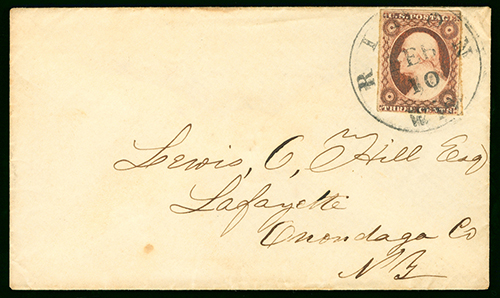 U.S. POSTAGE
FEB
10
THREE CENTS
Lewis, C, Hill Esq
Lafayette
Onondaga Co
N Y